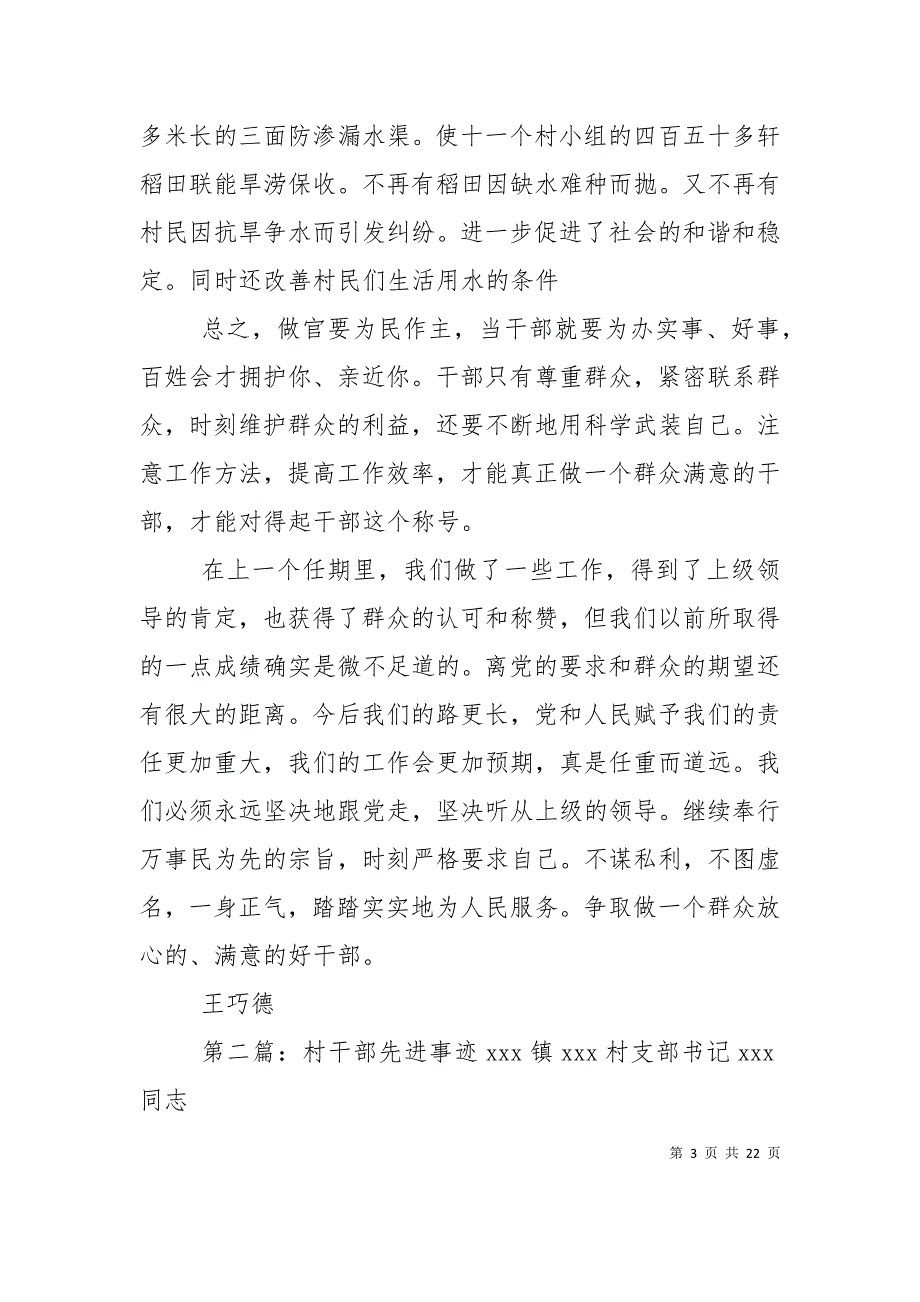 多米长的三面防渗漏水渠。使十一个村小组的四百五十多轩
稻田联能旱涝保收。不再有稻田因缺水难种而抛。又不再有
村民因抗旱争水而引发纠纷。进一步促进了社会的和谐和稳
定。同时还改善村民们生活用水的条件
总之，做官要为民作主，当干部就要为办实事、好事，
百姓会才拥护你、亲近你。干部只有尊重群众，紧密联系群
众，时刻维护群众的利益，还要不断地用科学武装自己。注
意工作方法，提高工作效率，才能真正做一个群众满意的干
部，才能对得起干部这个称号。
在上一个任期里，我们做了一些工作，得到了上级领
导的肯定，也获得了群众的认可和称赞，但我们以前所取得
的一点成绩确实是微不足道的。离党的要求和群众的期望还
有很大的距离。今后我们的路更长，党和人民赋予我们的责
任更加重大，我们的工作会更加预期，真是任重而道远。我
们必须永远坚决地跟党走，坚决听从上级的领导。继续奉行
万事民为先的宗旨，时刻严格要求自己。不谋私利，不图虚
名，一身正气，踏踏实实地为人民服务。争取做一个群众放
心的、满意的好干部。
王巧德
第二篇：村干部先进事迹 xxx 镇 xxx 村支部书记 xxx
同志
第 3 页 共 22 页